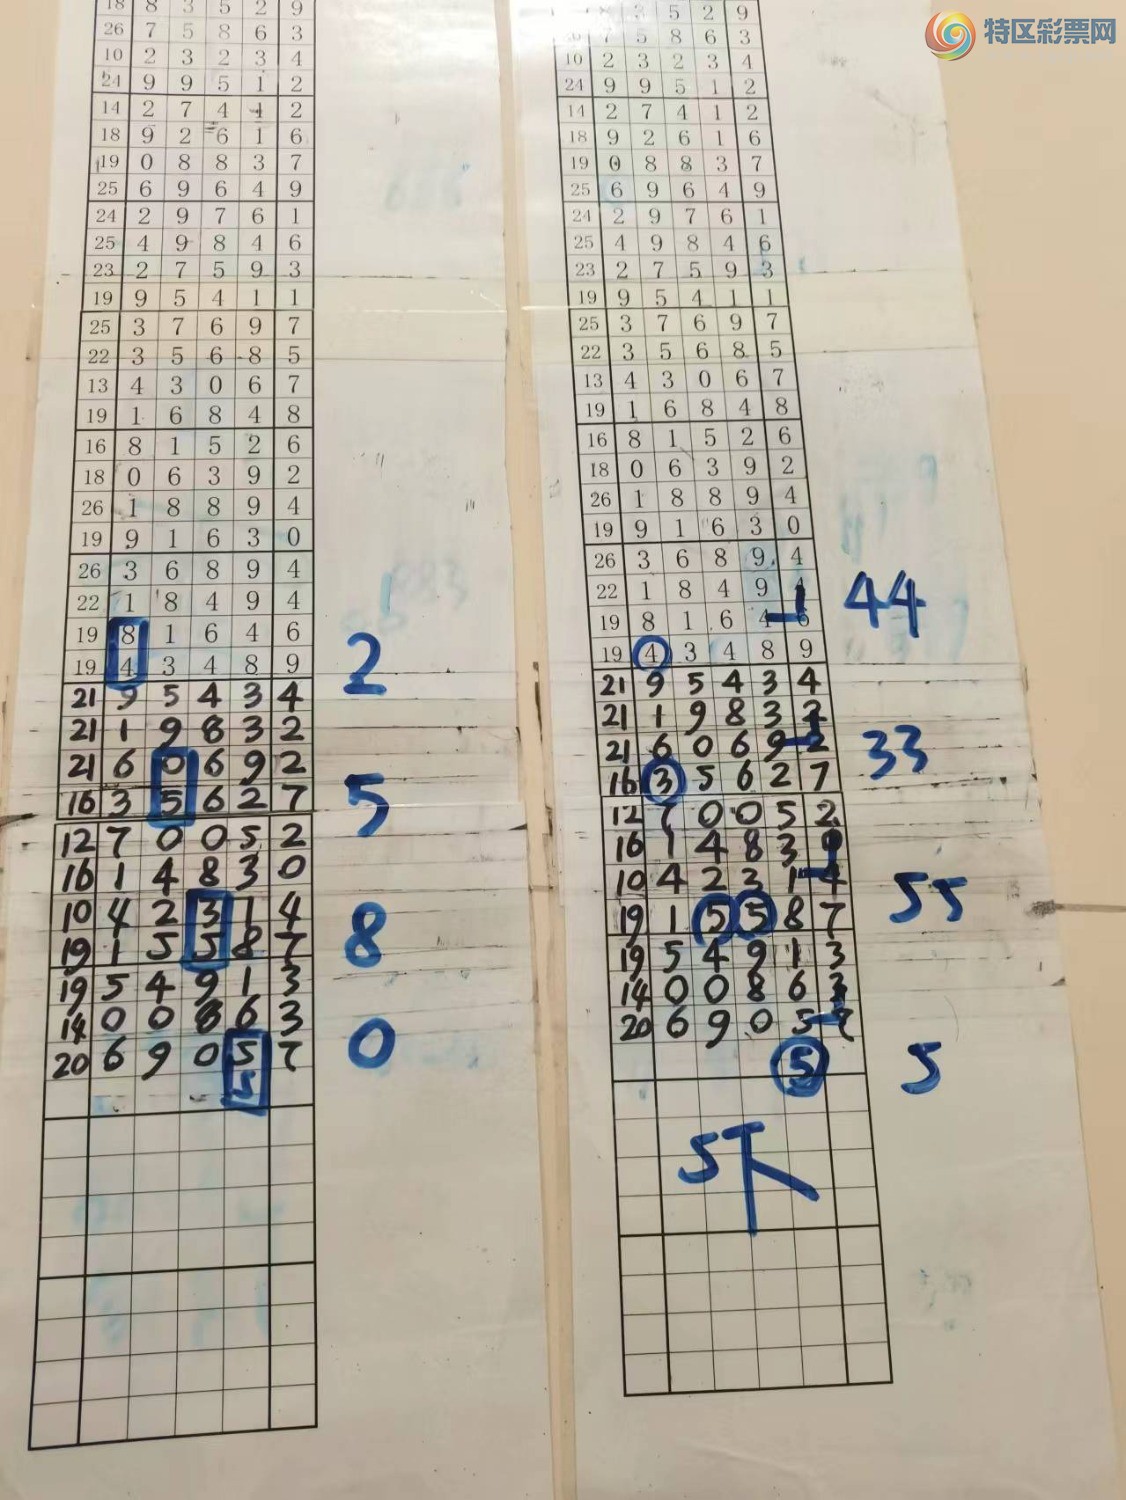 特区彩票网
18 8 3 5 2 9
26 7 5 8 6 3
10 2 3 2 3 4
24 9 9 5 1 2
14 2 7 4 1 2
18 9 2 6 1 6
19 0 8 8 3 7
25 6 9 6 4 9
24 2 9 7 6 1
25 4 9 8 4 6
23 2 7 5 9 3
19 9 5 4 1 1
25 3 7 6 9 7
22 3 5 6 8 5
13 4 3 0 6 7
19 1 6 8 4 8
16 8 1 5 2 6
18 0 6 3 9 2
26 1 8 8 9 4
19 9 1 6 3 0
26 3 6 8 9 4
22 1 8 4 9 4
19 8 1 6 4 6
19 4 3 4 8 9
2
21 9 5 4 3 4
21 1 9 8 3 2
21 6 0 6 9 2
16 3 5 6 2 7
5
12 7 0 0 5 2
16 1 4 8 3 0
10 4 2 3 1 4
19 1 5 5 8 7
8
19 5 4 9 1 3
14 0 0 8 6 3
20 6 9 0 5 7
0
5
3 5 2 9
5 8 6 3
10 2 3 2 3 4
24 9 9 5 1 2
14 2 7 4 1 2
18 9 2 6 1 6
19 0 8 8 3 7
25 6 9 6 4 9
24 2 9 7 6 1
25 4 9 8 4 6
23 2 7 5 9 3
19 9 5 4 1 1
25 3 7 6 9 7
22 3 5 6 8 5
13 4 3 0 6 7
19 1 6 8 4 8
16 8 1 5 2 6
18 0 6 3 9 2
26 1 8 8 9 4
19 9 1 6 3 0
26 3 6 8 9 4
22 1 8 4 9 4
19 8 1 6 4 6
44
19 4 3 4 8 9
21 9 5 4 3 4
21 1 9 8 3 2
21 6 0 6 9 2
33
16 3 5 6 2 7
12 7 0 0 5 2
16 1 4 8 3 0
10 4 2 3 1 4
55
19 1 5 5 8 7
19 5 4 9 1 3
14 0 0 8 6 3
20 6 9 0 5 7
5 5
5下